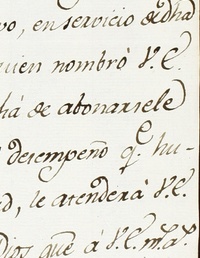 vo, en servicio de dha
quien nombró V.E.
há de abonarsele
desempeño q.e hu-
d, le atenderá V.E.
Dios gue á V.E. m.s a.s